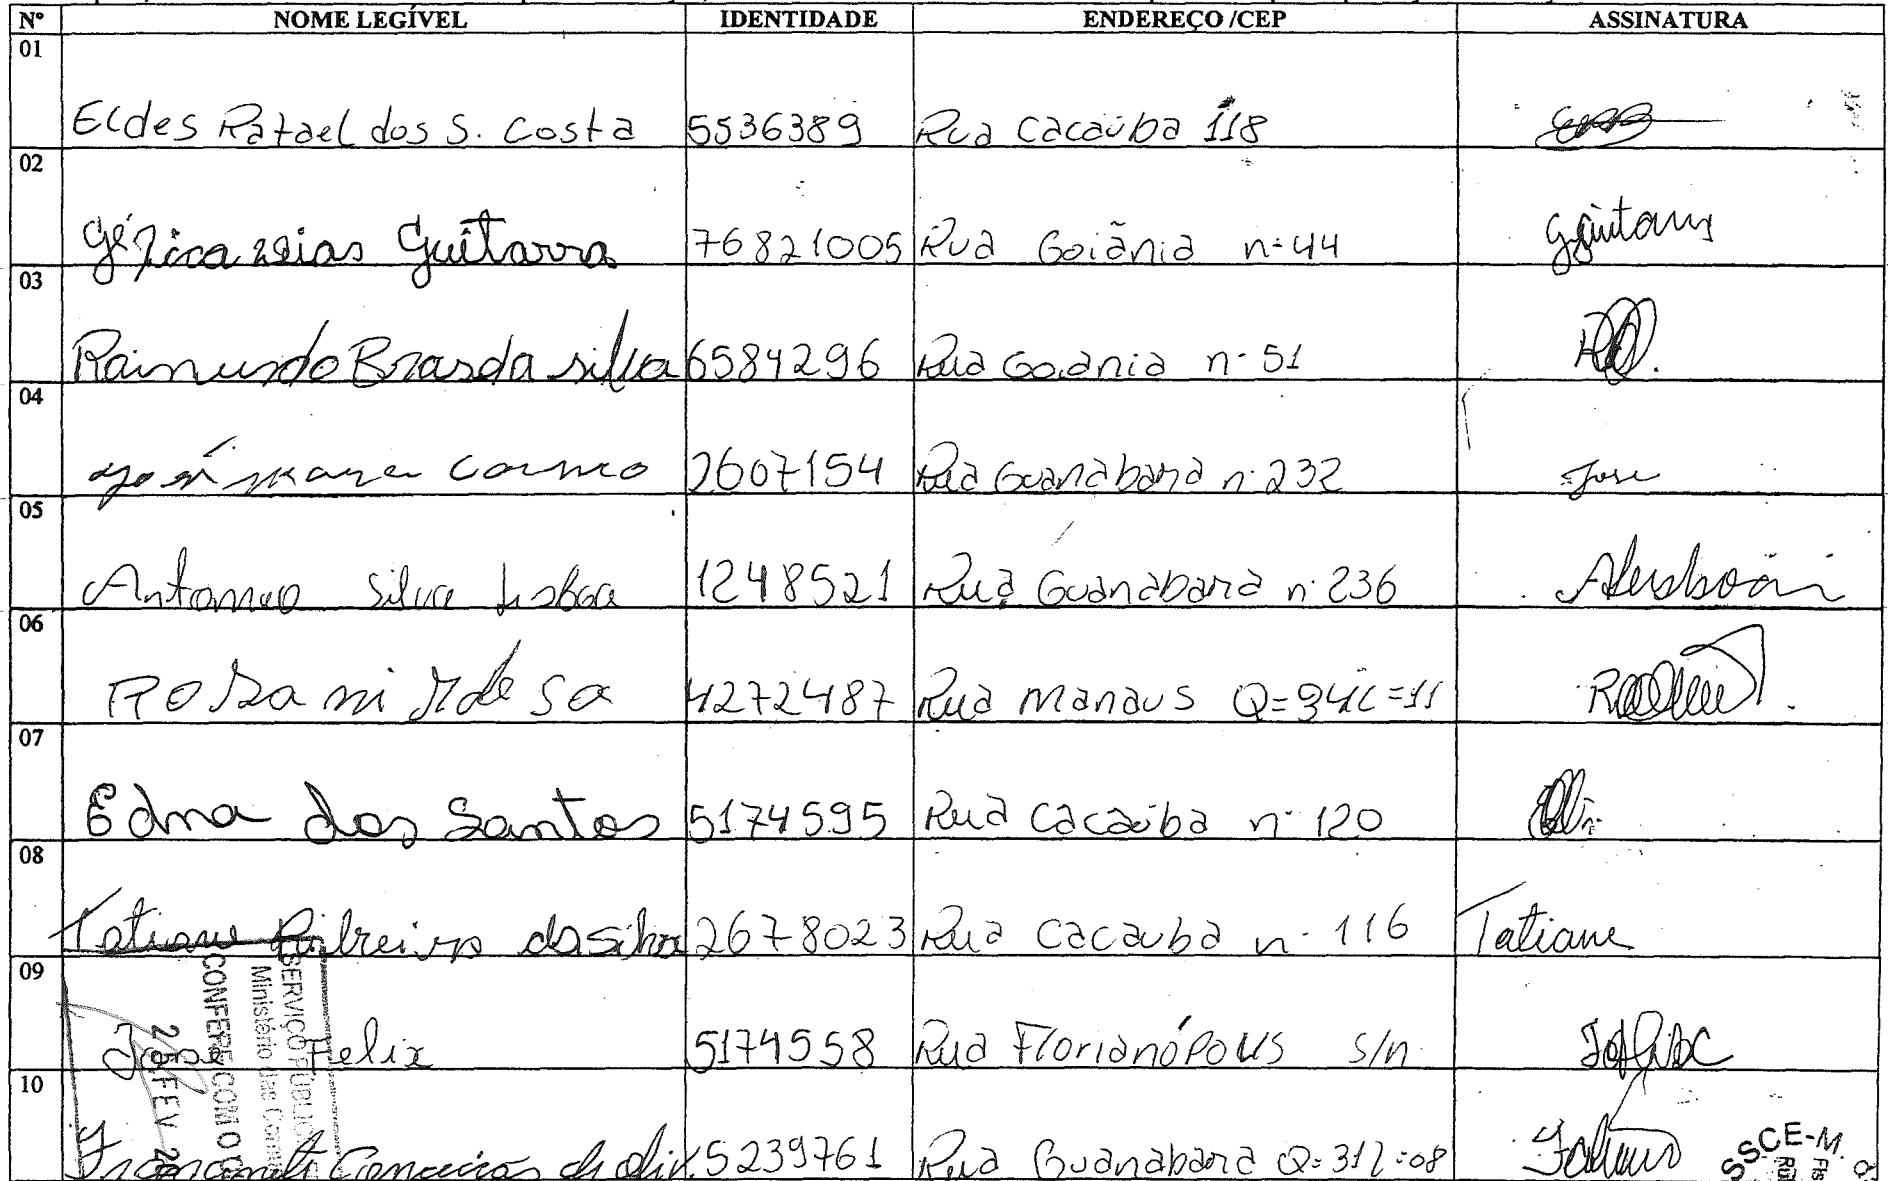 Nº NOME LEGÍVEL IDENTIDADE ENDEREÇO /CEP ASSINATURA
01 Eldes Rafael dos S. Costa 5536389 Rua Cacaúba 118
02 Guitarra 76821005 Rua Goiânia n=44
03 Raimundo Bras da silva 6584296 Rua Goiania n. 51
04 2607154 Rua Guanabara n. 232 Jose
05 Antonio Silva Lisboa 1248521 Rua Guanabara n. 236
06 Rosani de Sa 4272487 Rua Manaus Q=34L=11
07 Edna dos Santos 5174595 Rua Cacaúba n. 120
08 Tatiane Ribeiro da Silva 2678023 Rua Cacauba n. 116 Tatiane
09 José Felix 5174558 Rua Florianópolis s/n
10 Conceição de oliv. 5239761 Rua Guanabara Q=31L=08
SERVIÇO PÚBLICO
Ministério das Comu
CONFERE COM O
25 FEV 2
SSCE-M.
Fls